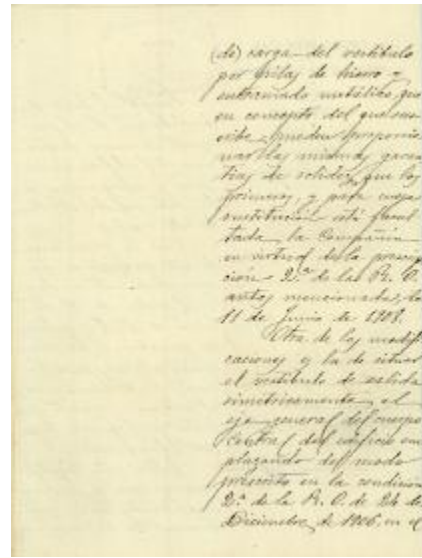 (de) carga del vestibulo
por pilas de hierro y
entramado metálico, que
en concepto del que sus-
cribe, pueden proporcio
nar las mismas garan
tias de solidez que los
primeros, y para cuya
sustitución está facul
tada la Compañia
en virtud de la prescrip
ción 2ª de la R. O.
antes mencionada, de
11 de Junio de 1908.
Otra de las modifi
caciones es la de situar
el vestibulo de salida
simetricamente al
eje general del cuerpo
central del edificio em
plazando del modo
prescrito en la condicion
2ª de la R. O. de 24 de
Diciembre de 1906, en el